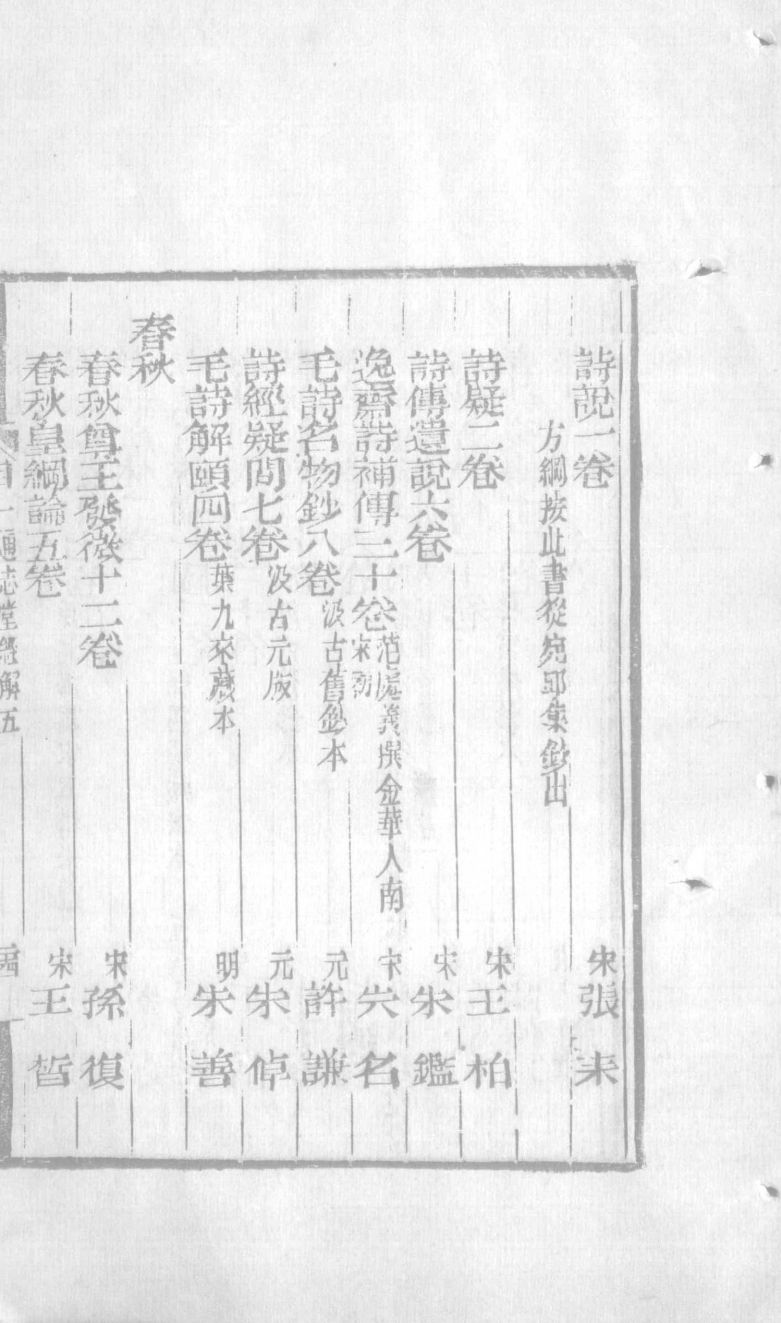 詩說一卷 宋張耒
方綱按此書從宛邱集鈔出
詩疑二卷 宋王柏
詩傳遺說六卷 宋朱鑑
逸齋詩補傳三十卷 范處義撰金華人南宋初 宋失名
毛詩名物鈔八卷 汲古舊鈔本 元許謙
詩經疑問七卷 汲古元版 元朱倬
毛詩解頤四卷 葉九來藏本 明朱善
春秋
春秋尊王發微十二卷 宋孫復
春秋皇綱論五卷 宋王晳
通志堂經解五